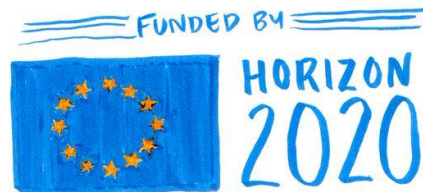 FUNDED BY
HORIZON
2020